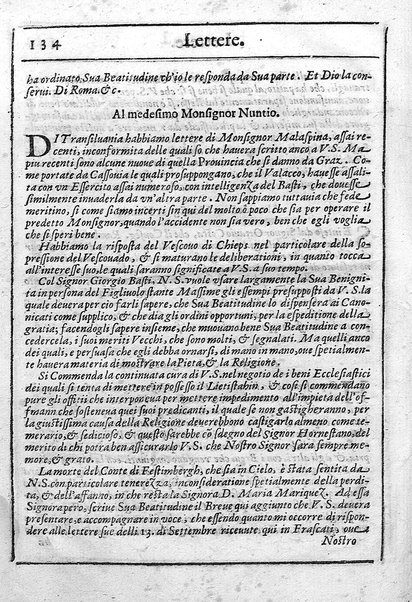 134 Lettere.
ha ordinato, Sua Beatitudine vh'io le responda da Sua parte. Et Dio la con-
servi. Di Roma. &c.
Al medesimo Monsignor Nuntio.
DI Transiluania habbiamo lettere di Monsignor Malaspina, assai re-
centi, in conformita delle quali so che hauera scritto anco a V.S. Ma
piu recenti sono alcune nuoue di quella Prouincia che si danno da Graz. Co-
me portate da Cassouia le quali prosuppongano, che il Valacco, hauesse assali-
ta con vn Essercito assai numeroso, con intelligenza del Basti, che douesse
similmente inuaderla da vn'altra parte. Non sappiamo tuttauia che fede
meritino, si come siamo incerti sin qui del molto ò poco che sia per operare il
predetto Monsignor, quando l'accidente non sia vero, ben che egli voglia
che si speri bene.
Habbiamo la risposta del Vescouo di Chieps nel particolare della so-
pressione del Vescouado, & si maturano le deliberationi, in quanto tocca
all'interesse suo, le quali saranno significate a V.S. a suo tempo.
Col Signor Giorgio Basti, N.S. vuole vsare largamente la Sua Benigni-
ta in persona del Figliuolo stante Massime gli essempi supposti da V.S. la
quale deuera per cio farli sapere, che Sua Beatitudine lo dispensera ai Cano-
nicati come supplicò, & che dia gli ordini opportuni, per la espeditione della
gratia; facendogli sapere insieme, che muouano bene Sua Beatitudine a con-
cedercela, i suoi meriti Vecchi, che sono molti, & segnalati. Ma quelli anco
dei quali, e persuasa che egli debba ornarsi, di mano in mano, oue spetialmen-
te hauera materia di mostrare la Pieta, & la Religione.
Si Commenda la continuata cura di V.S. nel negotio de i beni Ecclesiastici
dei quali si tenta di mettere in possesso il Lietistahin, & cosi si commendano
pure gli offitii che interponeua per mettere impedimento all'impietà dell'of-
fmann che sosteneua quei suoi predicanti, il quale se non gastigheranno, per
la giustissima causa della Religione deuerebbono castigarlo almeno come te-
merario, & sedicioso, & questo sarebbe cosa degno del Signor Hornestano, del
merito di chi potra ben assicurarlo V.S. che Nostro Signor sara sempre me-
more, & grato.
La morte del Conte di Festimbergh, che sia in Cielo, è stata sentita da
N.S. con particolare tenerezza, in consideratione spetialmente della perdi-
ta, & dell'affanno, in che resta la Signora D. Maria Mariquez. Ad essa
Signora però, scriue Sua Beatitudine il Breue qui aggiunto che V.S. deuera
presentare, e accompagnare in voce, che essendo quanto mi occorre di rispon-
dere alle lettere sue delli 13. di Settembre riceuute, qui in Frascati, oue
Nostro